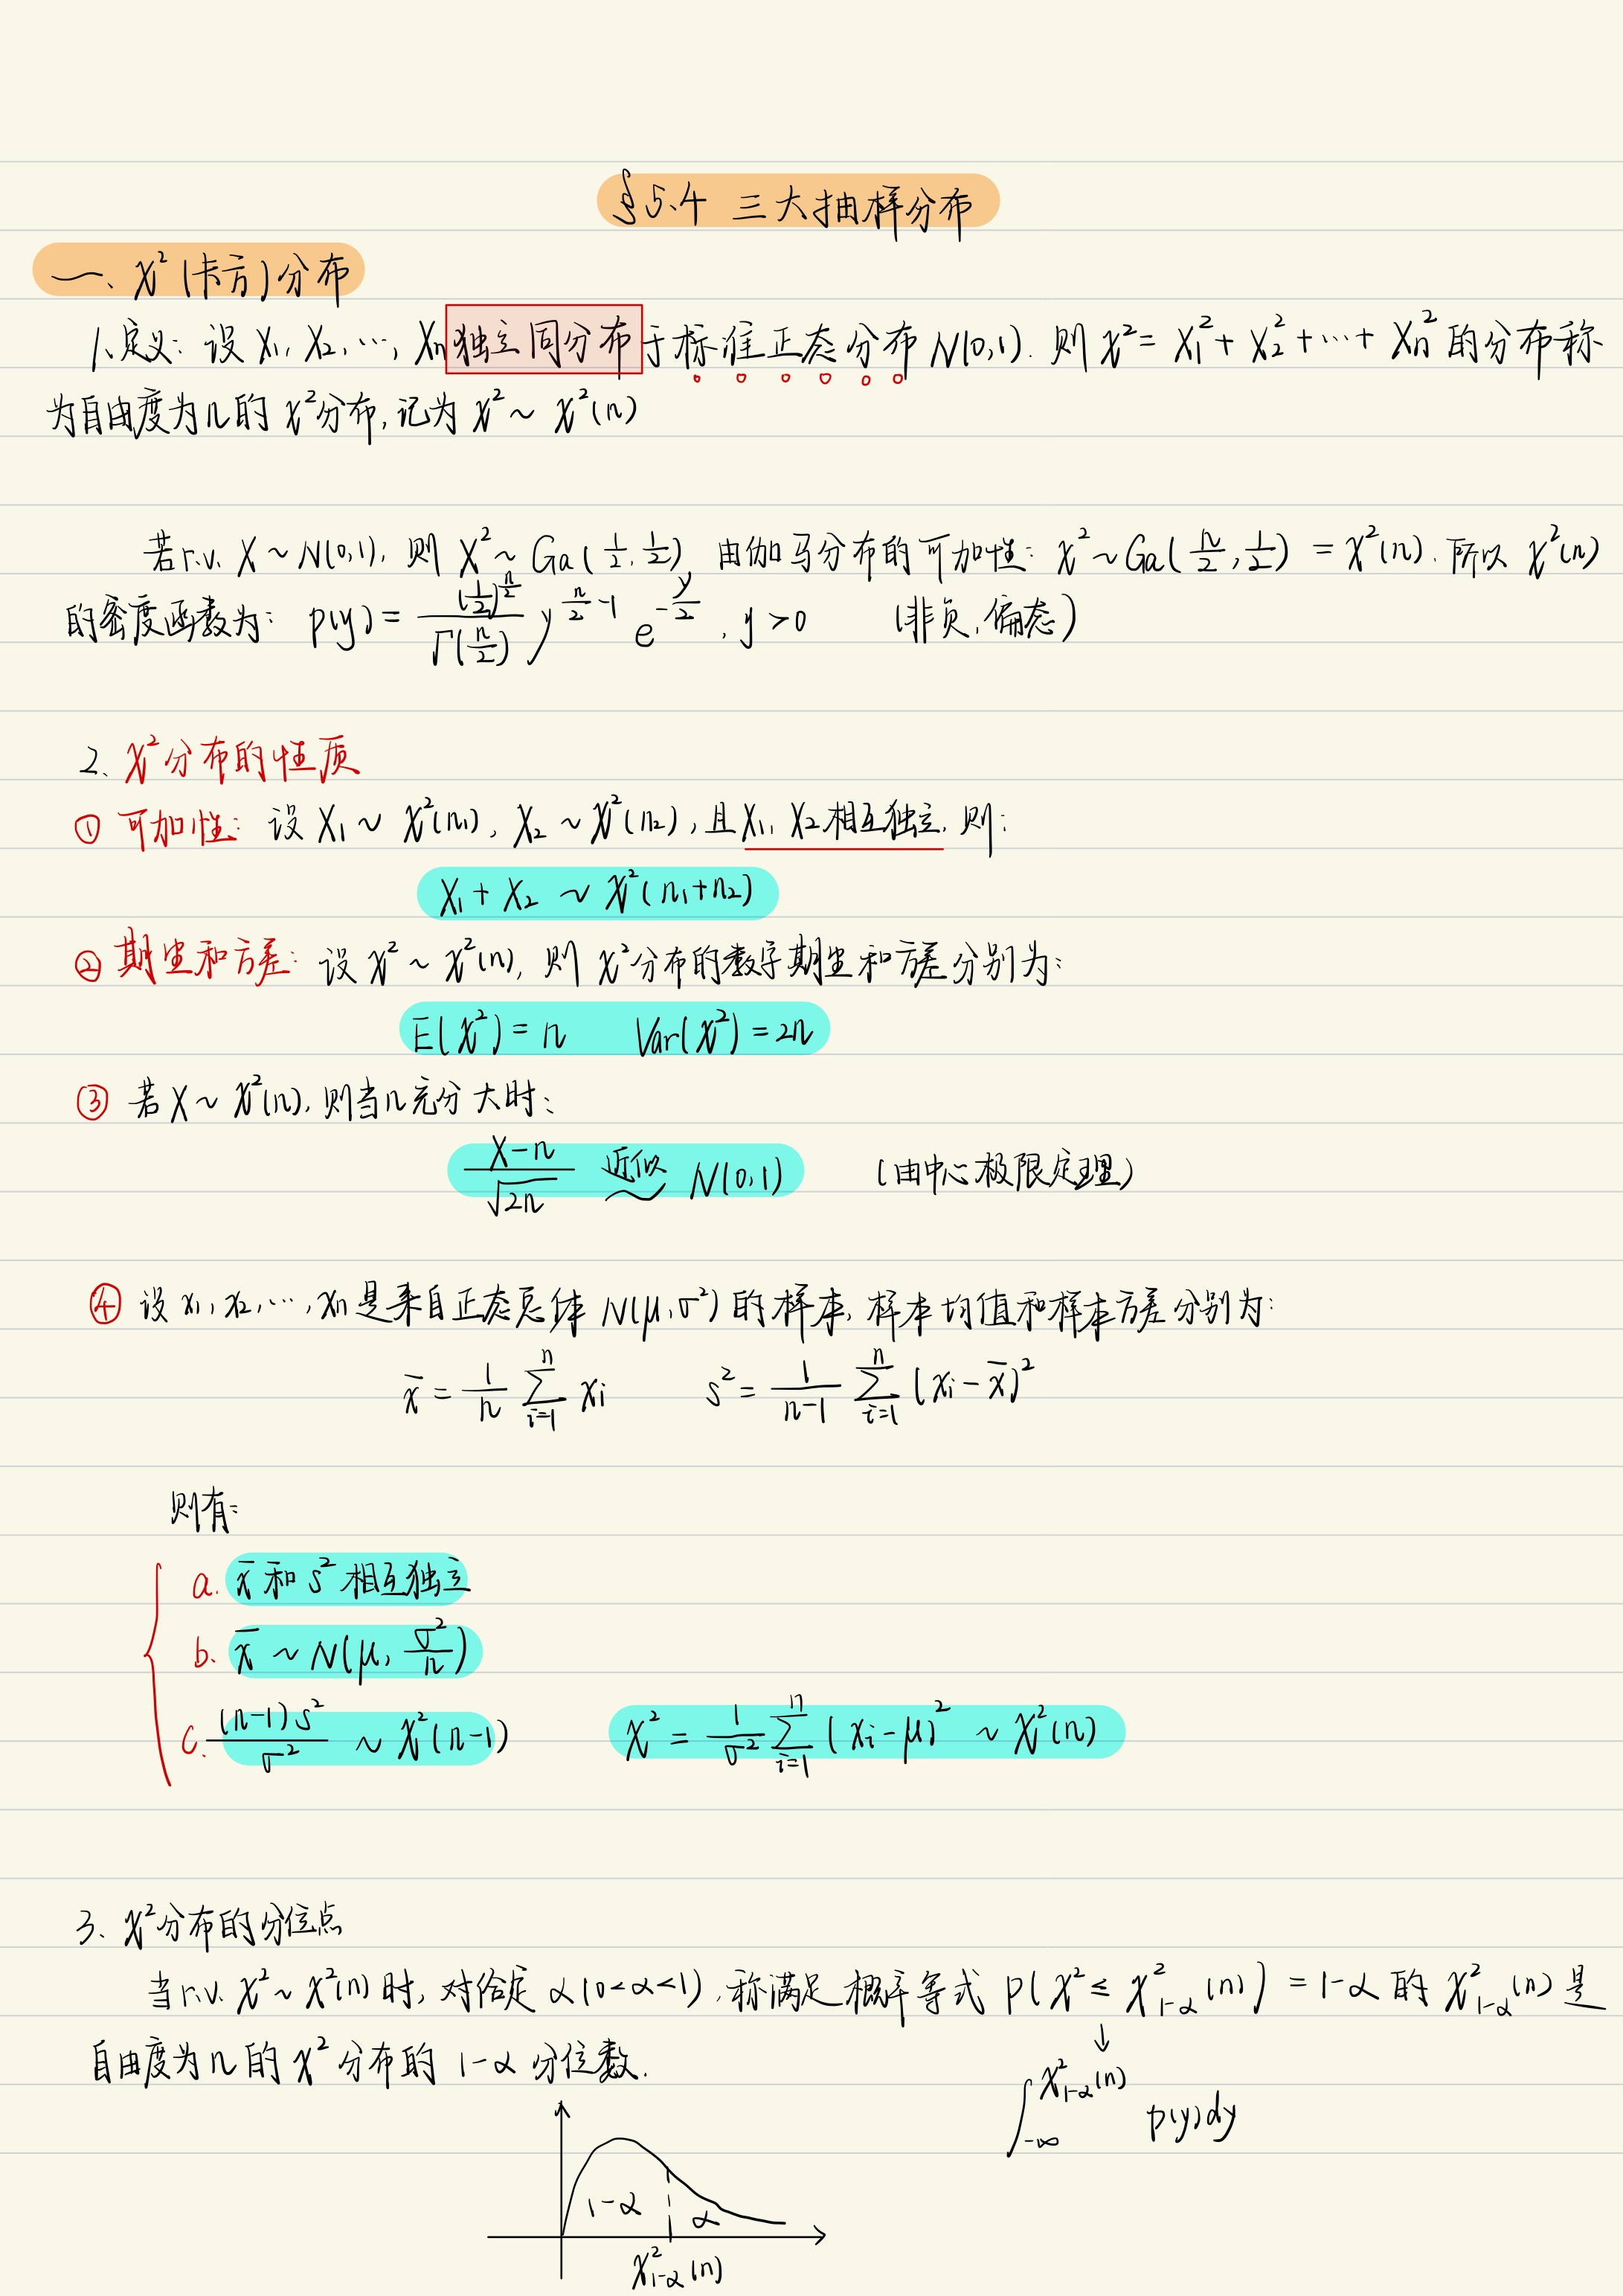 §5.4 三大抽样分布
一、χ²(卡方)分布
1、定义：设 X₁, X₂, ⋯, Xn独立同分布于标准正态分布 N(0,1). 则 χ² = X₁² + X₂² + ⋯ + Xn² 的分布称
为自由度为n的 χ²分布, 记为 χ² ~ χ²(n)
若 r.v. X ~ N(0,1), 则 X² ~ Ga(1/2, 1/2) 由伽马分布的可加性: χ² ~ Ga(n/2, 1/2) = χ²(n). 所以 χ²(n)
的密度函数为: p(y) = (1/2)^(n/2) / Γ(n/2) y^(n/2 -1) e^(-y/2), y > 0 (非负, 偏态)
2、χ²分布的性质
① 可加性: 设 X₁ ~ χ²(n₁), X₂ ~ χ²(n₂), 且X₁, X₂相互独立, 则:
X₁ + X₂ ~ χ²(n₁+n₂)
② 期望和方差: 设 χ² ~ χ²(n), 则 χ²分布的数学期望和方差分别为:
E(χ²) = n Var(χ²) = 2n
③ 若 X ~ χ²(n), 则当n充分大时:
(X-n)/√(2n) 近似~ N(0,1) (由中心极限定理)
④ 设 x₁, x₂, ⋯, xn 是来自正态总体 N(μ, σ²) 的样本, 样本均值和样本方差分别为:
x̄ = 1/n Σ_{i=1}^{n} xi s² = 1/(n-1) Σ_{i=1}^{n} (xi - x̄)²
则有:
a. x̄ 和 s² 相互独立
b. x̄ ~ N(μ, σ²/n)
c. (n-1)s²/σ² ~ χ²(n-1) χ² = 1/σ² Σ_{i=1}^{n} (xi - μ)² ~ χ²(n)
3、χ²分布的分位点
当 r.v. χ² ~ χ²(n) 时, 对给定 α(0<α<1), 称满足概率等式 P(χ² ≤ χ²_{1-α}(n)) = 1-α 的 χ²_{1-α}(n) 是
自由度为n的 χ² 分布的 1-α 分位数.
↓
∫_{-∞}^{χ²_{1-α}(n)} p(y)dy
1-α α
χ²_{1-α}(n)